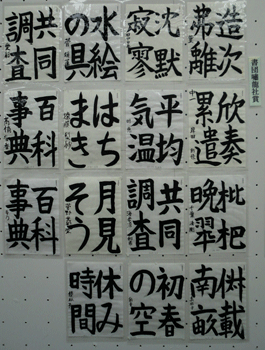 造次
弗離
沈默
寂寥
水絵
の具
共同
調査
欣奏
累遣
平均
気温
はち
まき
百科
事典
枇杷
晩翠
共同
調査
月見
そう
百科
事典
俶載
南畝
初春
の空
休み
時間